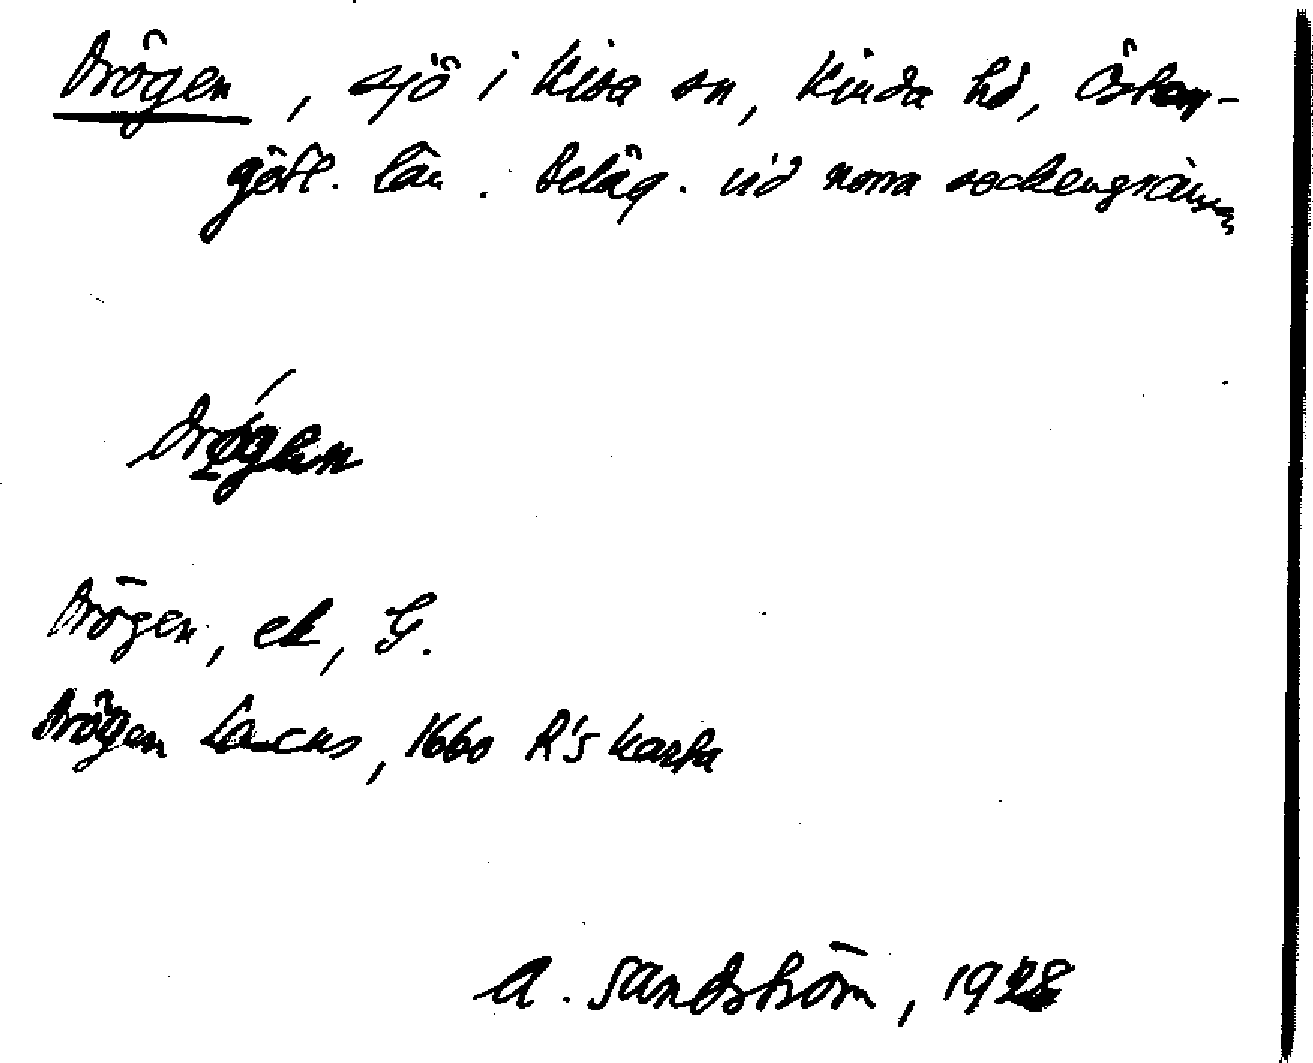 Drögen, sjö i Kisa sn, Kinda hd, Östan-
götl. län. Beläg. vid norra sockengränsen
Drö́gen
Drögen, ek, G.
Drögen Lacus, 1660 R's karta
A. Sandström, 1928